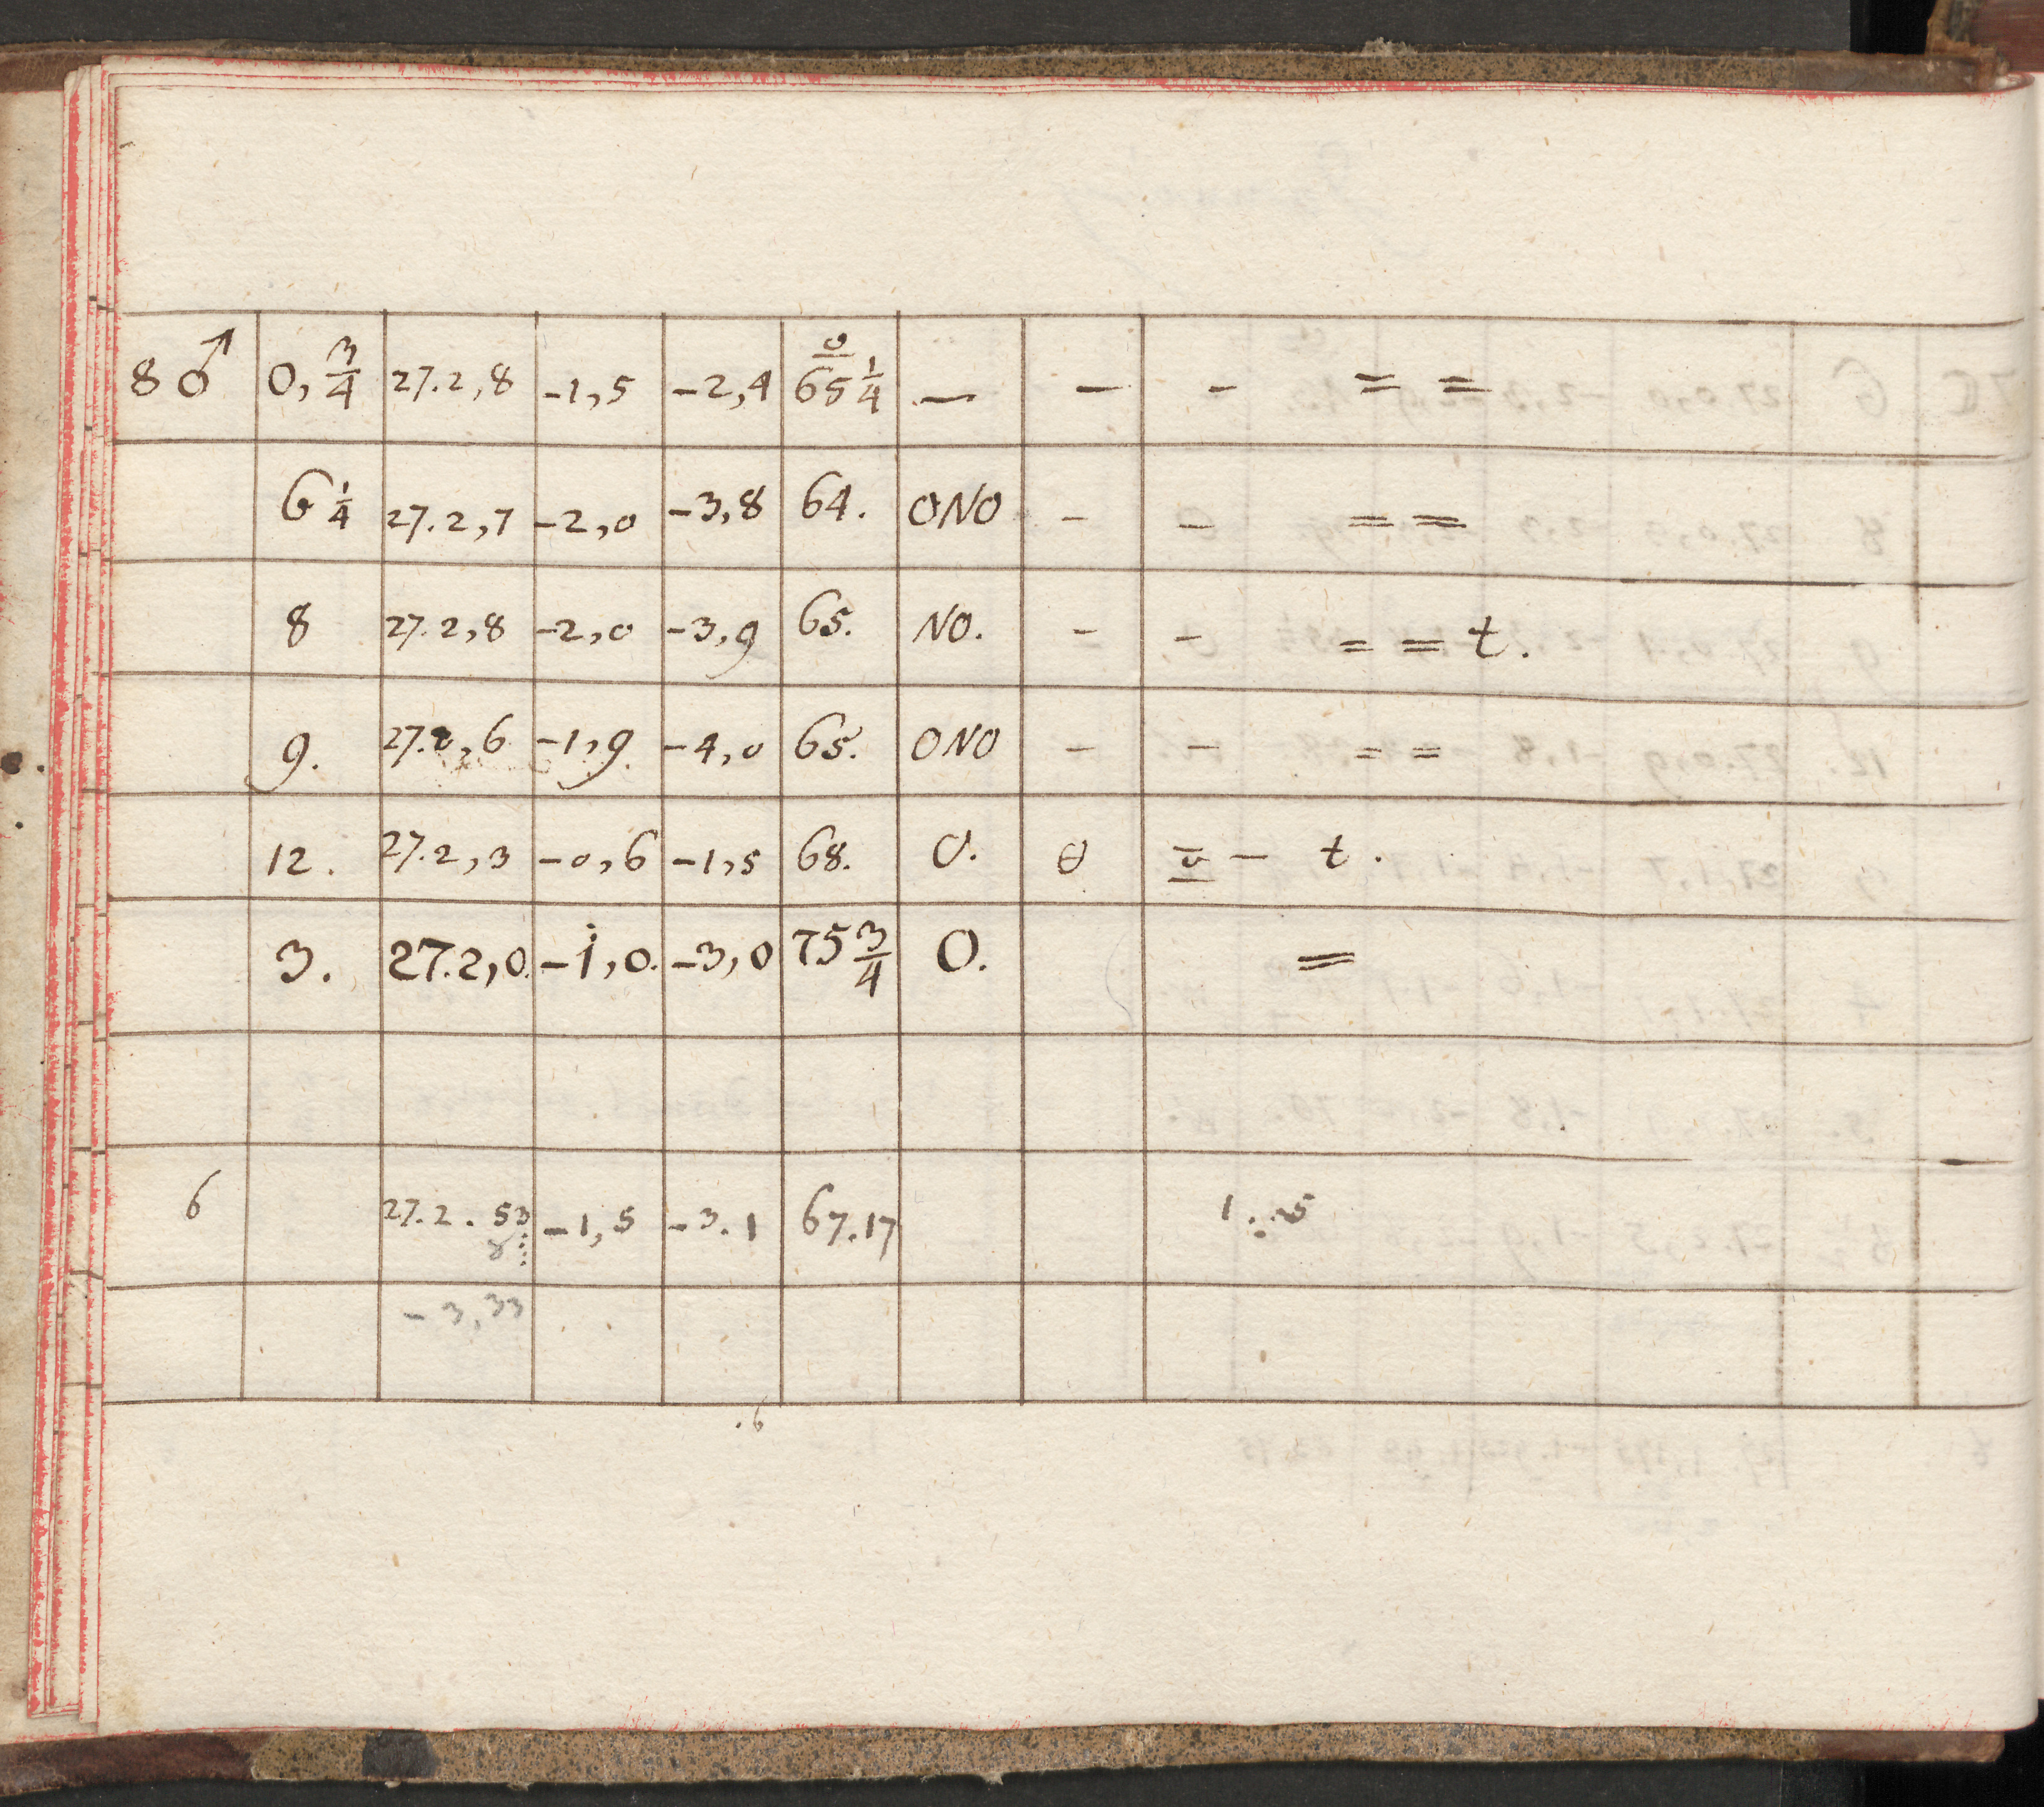 8 ♂ 0, 3/4 27.2,8 -1,5 -2,4 65 1/4 — — - = =
6 1/4 27.2,7 -2,0 -3,8 64. ONO - - = =
8 27.2,8 -2,0 -3,9 65. NO. - - = = t.
9. 27.2,6 -1,9. -4,0 65. ONO - - = =
12. 27.2,3 -0,6 -1,5 68. O. θ - t.
3. 27.2,0. -1,0. -3,0 75 3/4 O. =
6 27.2.53 -1,5 -3.1 67.17 1..5
8
-3,33
.6